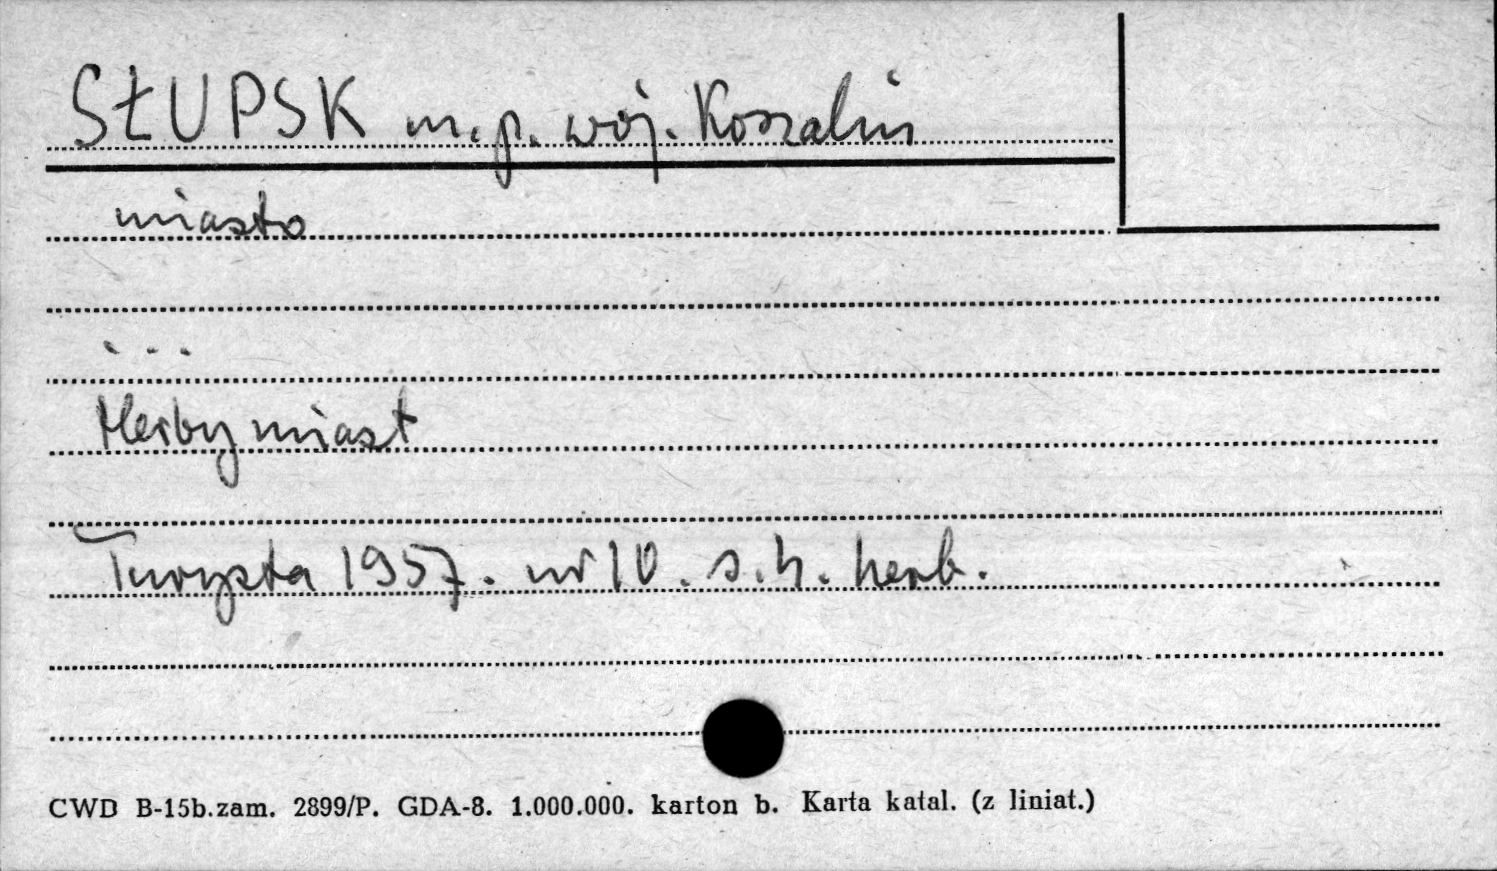 SŁUPSK m.p. woj. Koszalin
miasto
...
Herby miast
Turysta 1957. nr 10. s.h. herb.
CWD B-15b.zam. 2899/P. GDA-8. 1.000.000. karton b. Karta katal. (z liniat.)